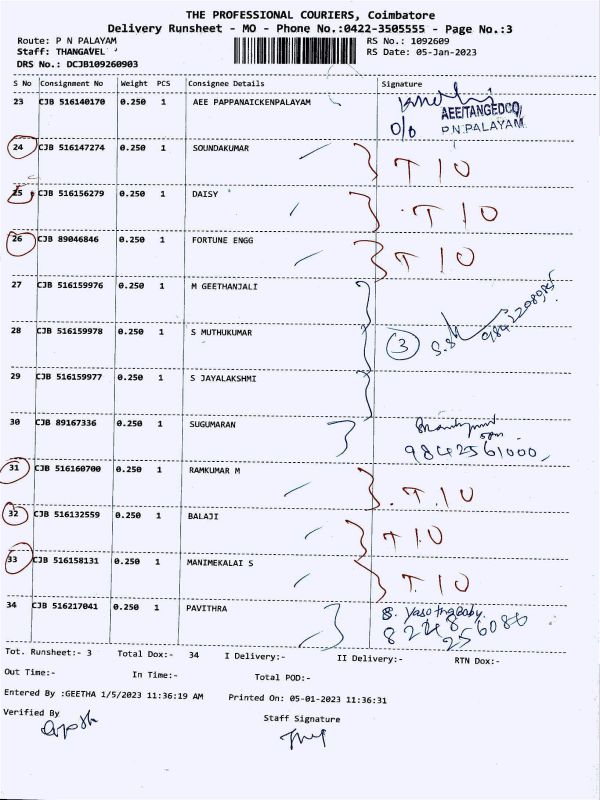 THE PROFESSIONAL COURIERS, Coimbatore
Delivery Runsheet - MO - Phone No.:0422-3505555 - Page No.:3
Route: P N PALAYAM RS No.: 1092609
Staff: THANGAVEL RS Date: 05-Jan-2023
DRS No.: DCJB109260903
S No Consignment No Weight PCS Consignee Details Signature
23 CJB 516140170 0.250 1 AEE PAPPANAICKENPALAYAM
AEE/TANGEDCO
O/o P.N.PALAYAM
24 CJB 516147274 0.250 1 SOUNDAKUMAR T10
25 CJB 516156279 0.250 1 DAISY T10
26 CJB 89046846 0.250 1 FORTUNE ENGG T10
27 CJB 516159976 0.250 1 M GEETHANJALI
28 CJB 516159978 0.250 1 S MUTHUKUMAR 3
29 CJB 516159977 0.250 1 S JAYALAKSHMI
30 CJB 89167336 0.250 1 SUGUMARAN
9842561000
31 CJB 516160700 0.250 1 RAMKUMAR M T10
32 CJB 516132559 0.250 1 BALAJI T10
33 CJB 516158131 0.250 1 MANIMEKALAI S T10
34 CJB 516217041 0.250 1 PAVITHRA
Tot. Runsheet:- 3 Total Dox:- 34 I Delivery:- II Delivery:- RTN Dox:-
Out Time:- In Time:- Total POD:-
Entered By :GEETHA 1/5/2023 11:36:19 AM Printed On: 05-01-2023 11:36:31
Verified By Staff Signature